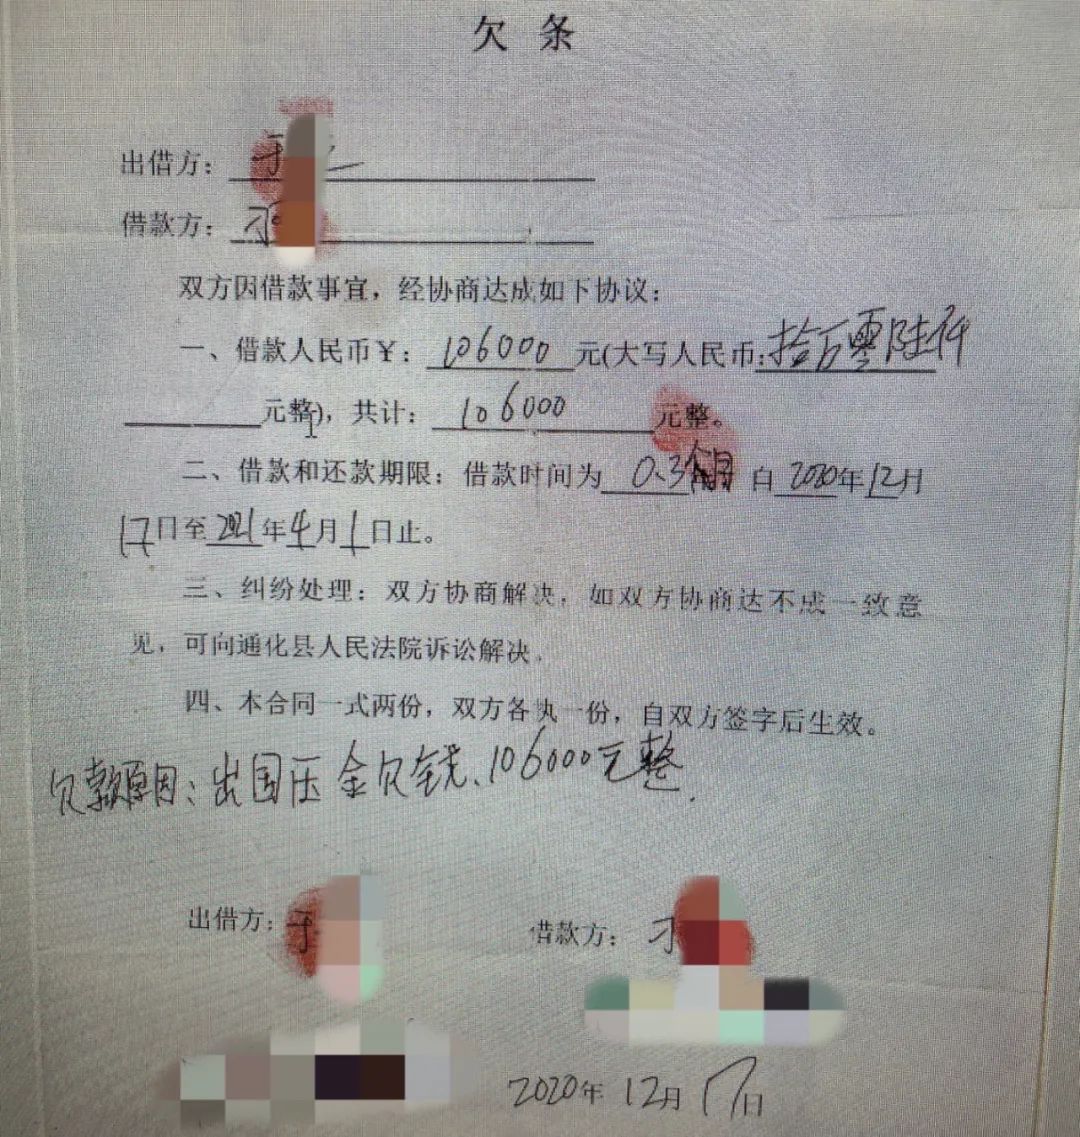 欠条
出借方：于
借款方：
双方因借款事宜，经协商达成如下协议：
一、借款人民币￥：106000元(大写人民币:拾万零陆仟
元整)，共计：106000元整。
二、借款和还款期限：借款时间为0.3个月自2020年12月
17日至2021年4月1日止。
三、纠纷处理：双方协商解决，如双方协商达不成一致意
见，可向通化县人民法院诉讼解决。
四、本合同一式两份，双方各执一份，自双方签字后生效。
欠款原因：出国压金欠钱、106000元整.
出借方：于 借款方：刁
2020年12月17日